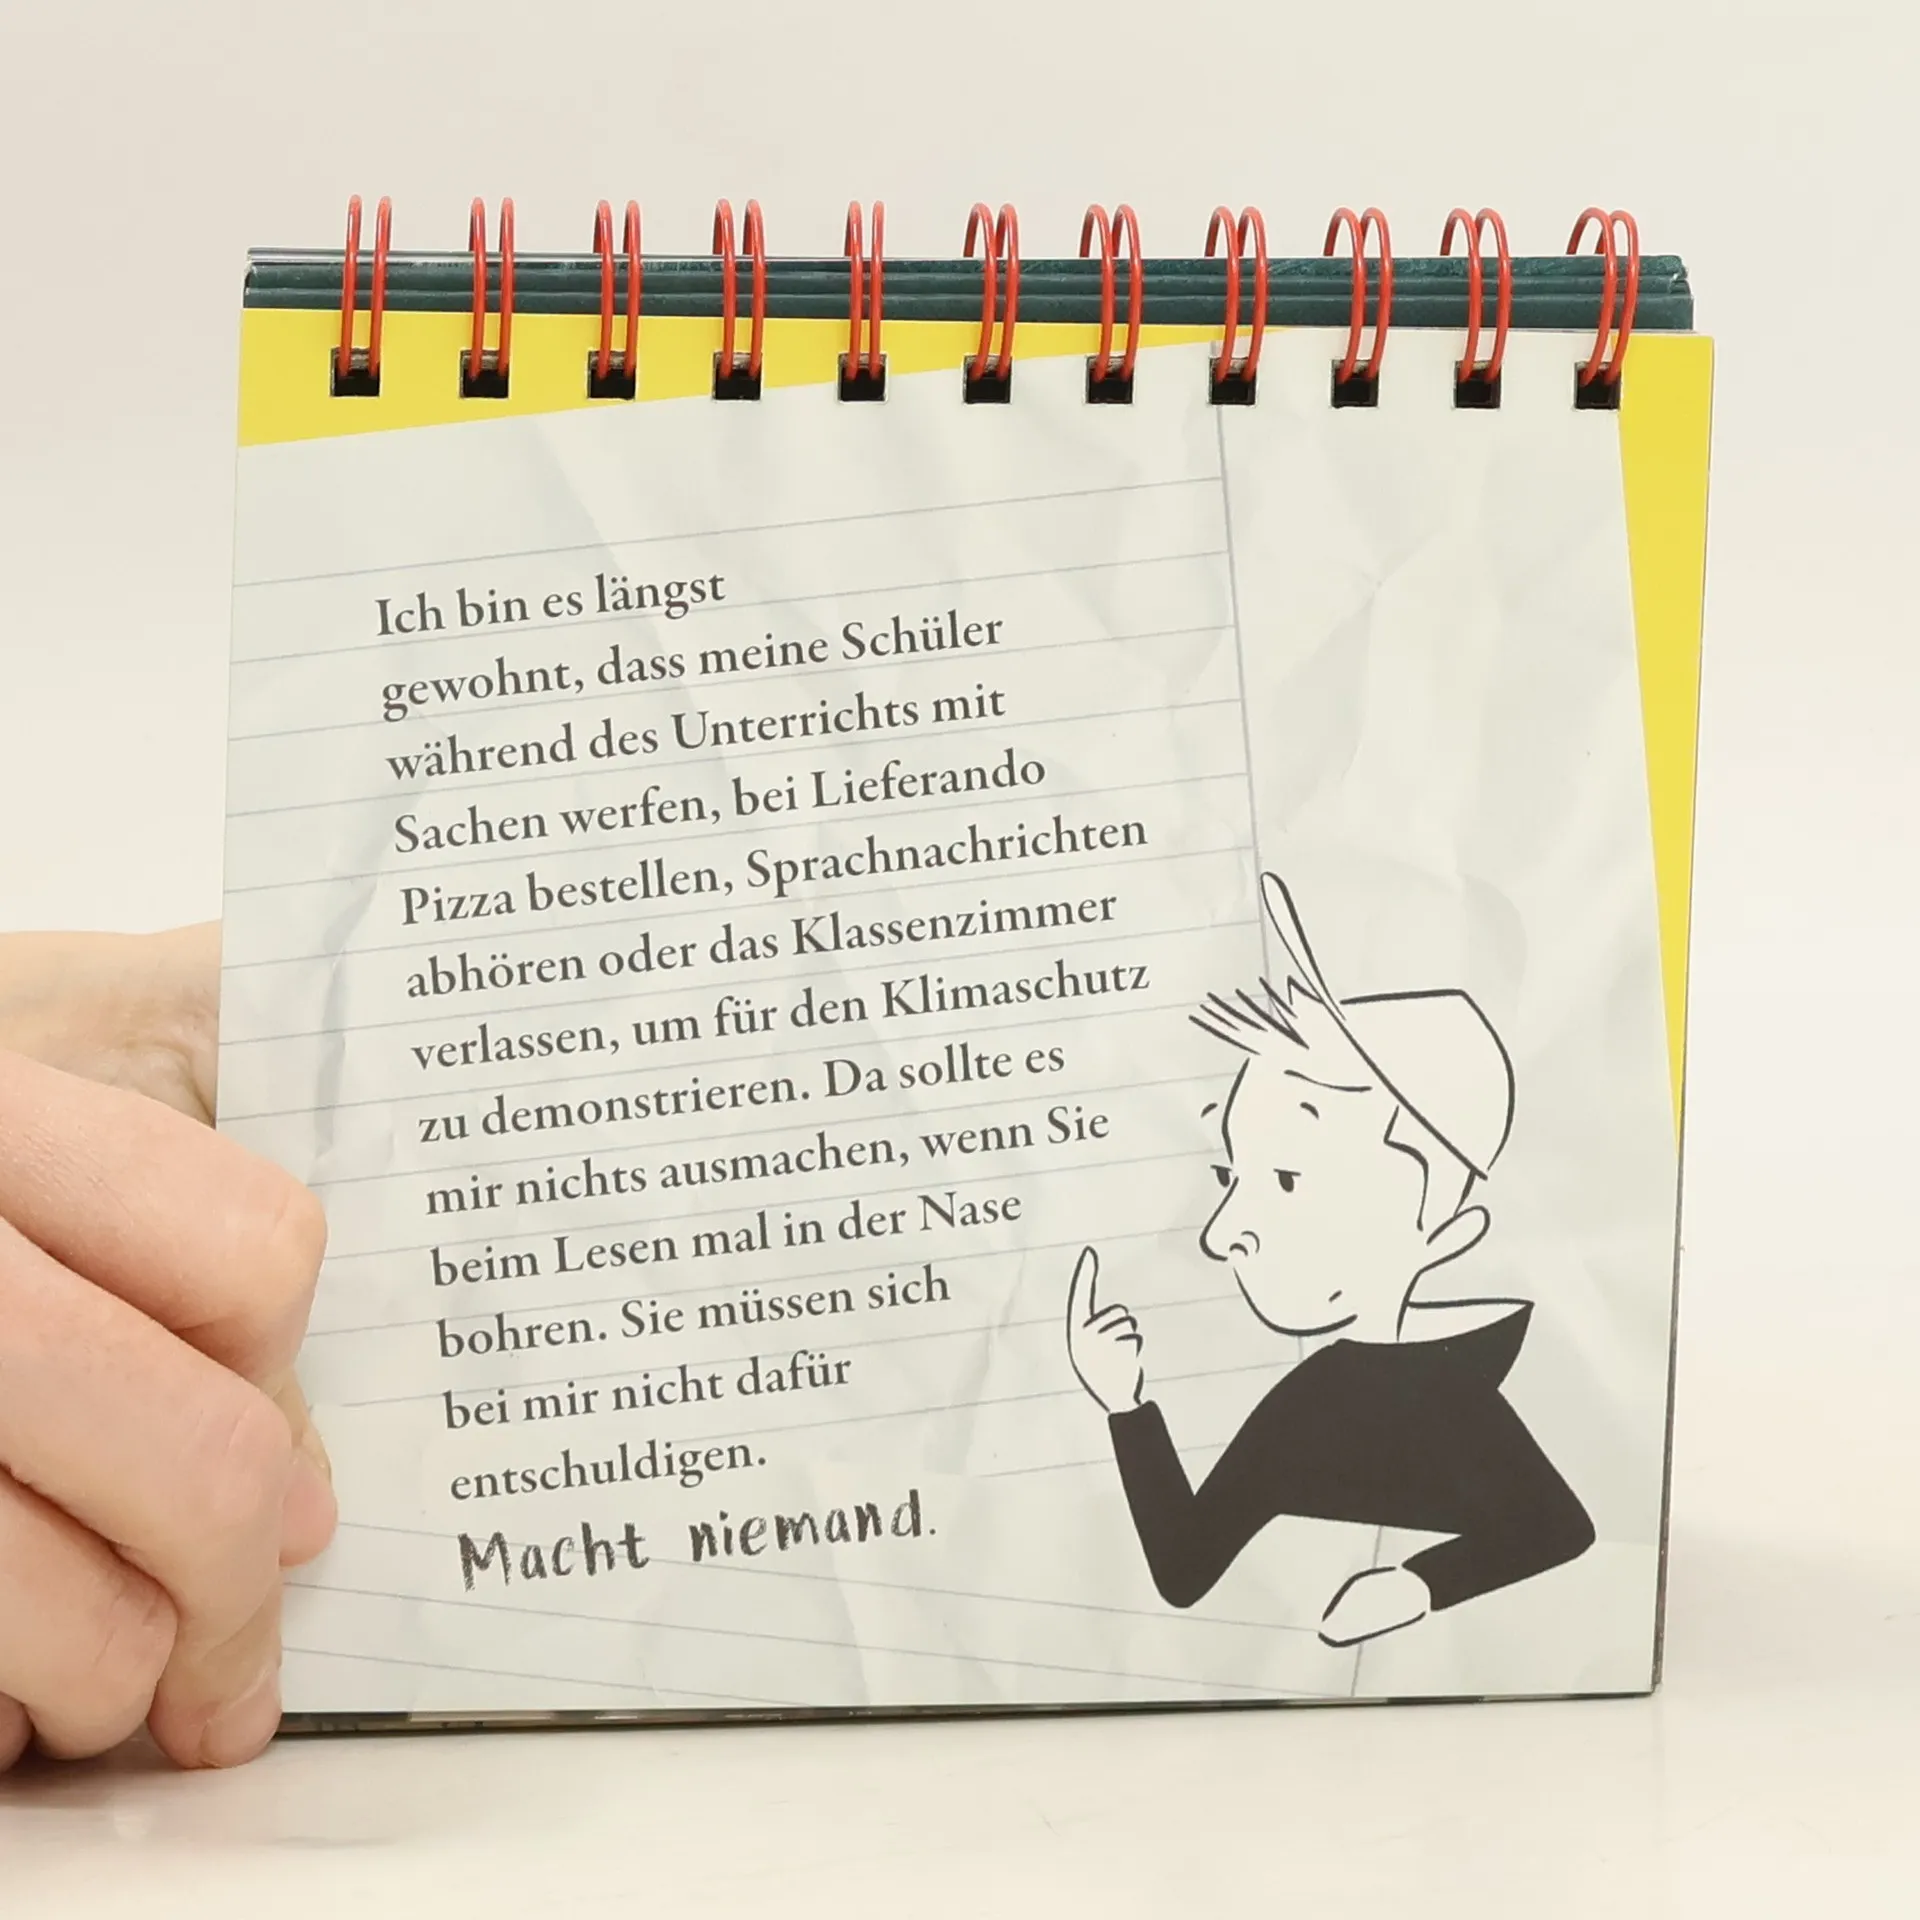 Ich bin es längst
gewohnt, dass meine Schüler
während des Unterrichts mit
Sachen werfen, bei Lieferando
Pizza bestellen, Sprachnachrichten
abhören oder das Klassenzimmer
verlassen, um für den Klimaschutz
zu demonstrieren. Da sollte es
mir nichts ausmachen, wenn Sie
beim Lesen mal in der Nase
bohren. Sie müssen sich
bei mir nicht dafür
entschuldigen.
Macht niemand.